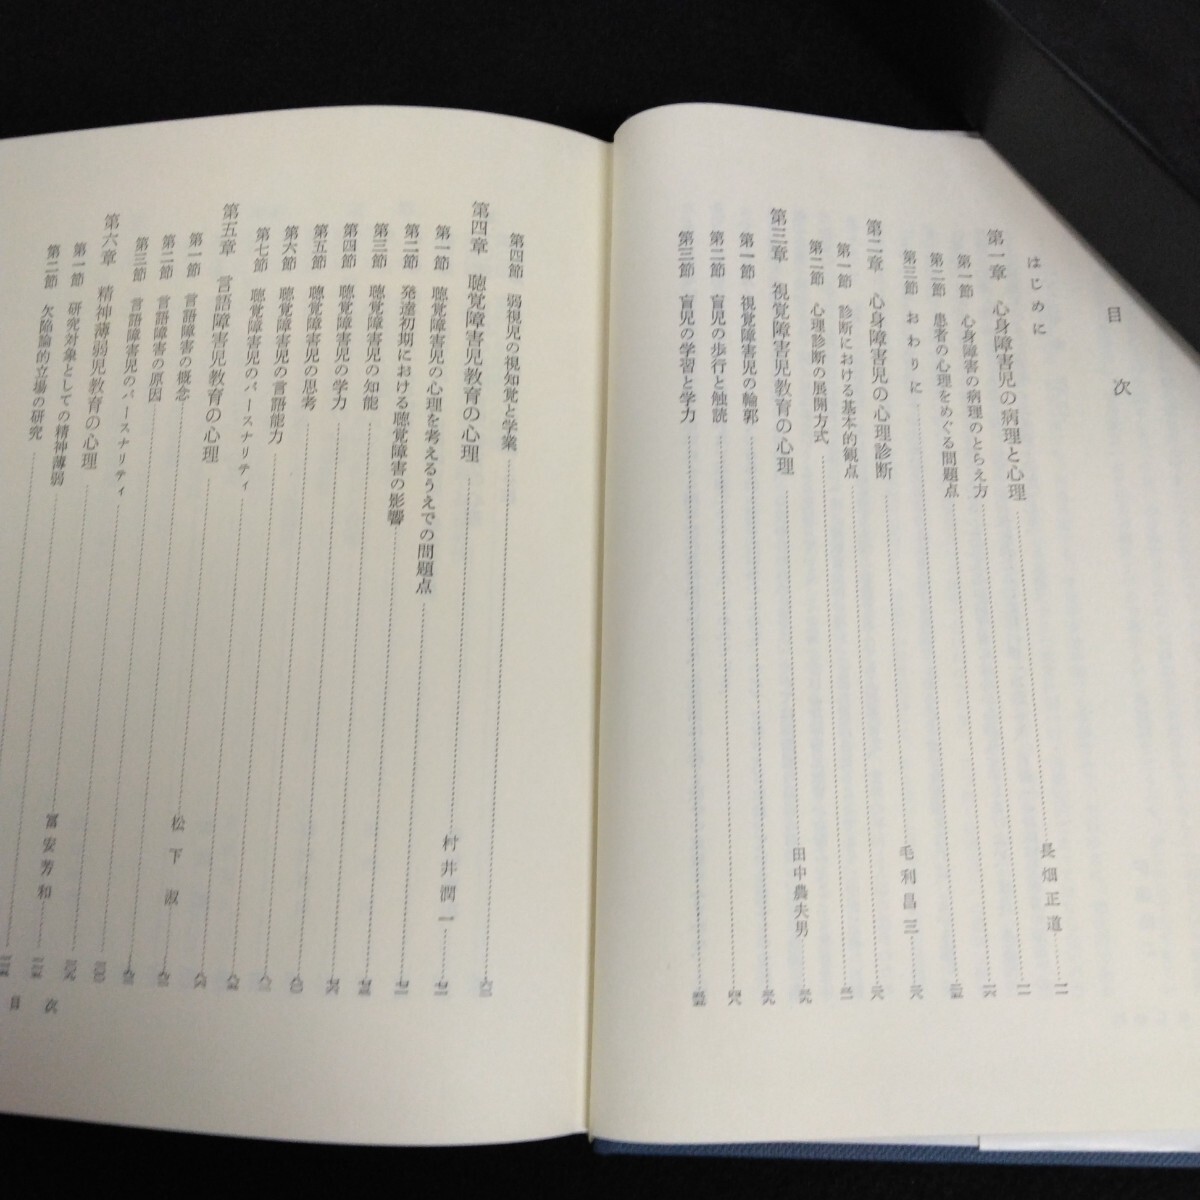 目次
はじめに
第一章 心身障害児の病理と心理 長畑正道
第一節 心身障害の病理のとらえ方
第二節 患者の心理をめぐる問題点
第三節 おわりに
第二章 心身障害児の心理診断 毛利昌三
第一節 診断における基本的観点
第二節 心理診断の展開方式
第三章 視覚障害児教育の心理 田中農夫男
第一節 視覚障害児の輪郭
第二節 盲児の歩行と触読
第三節 盲児の学習と学力
第四節 弱視児の視知覚と学業
第四章 聴覚障害児教育の心理 村井潤一
第一節 聴覚障害児の心理を考えるうえでの問題点
第二節 発達初期における聴覚障害の影響
第三節 聴覚障害児の知能
第四節 聴覚障害児の学力
第五節 聴覚障害児の思考
第六節 聴覚障害児の言語能力
第七節 聴覚障害児のパースナリティ
第五章 言語障害児教育の心理 松下淑
第一節 言語障害の概念
第二節 言語障害の原因
第三節 言語障害児のパースナリティ
第六章 精神薄弱児教育の心理 冨安芳和
第一節 研究対象としての精神薄弱
第二節 欠陥論的立場の研究
目次